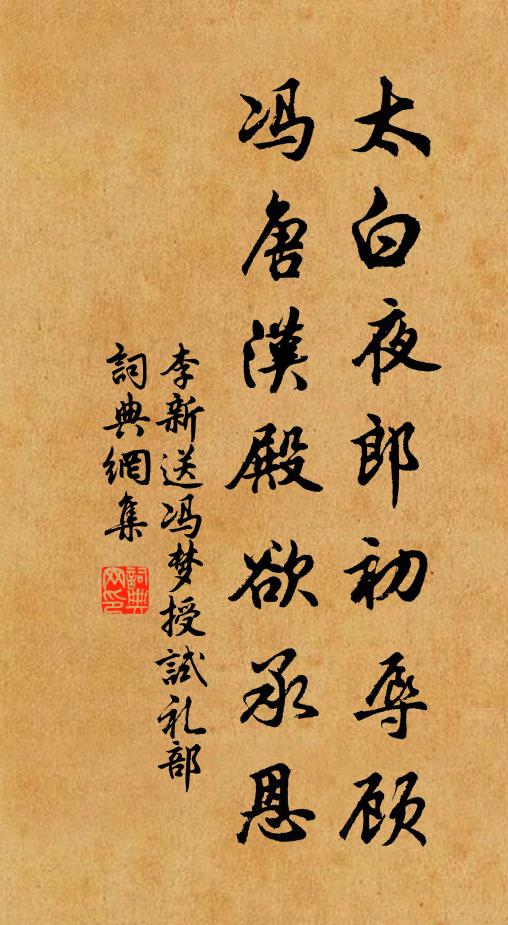 太白夜郎初辱顾
冯唐漢殿欲承恩
李新送冯梦授試礼部
詞典網集
詞典网印